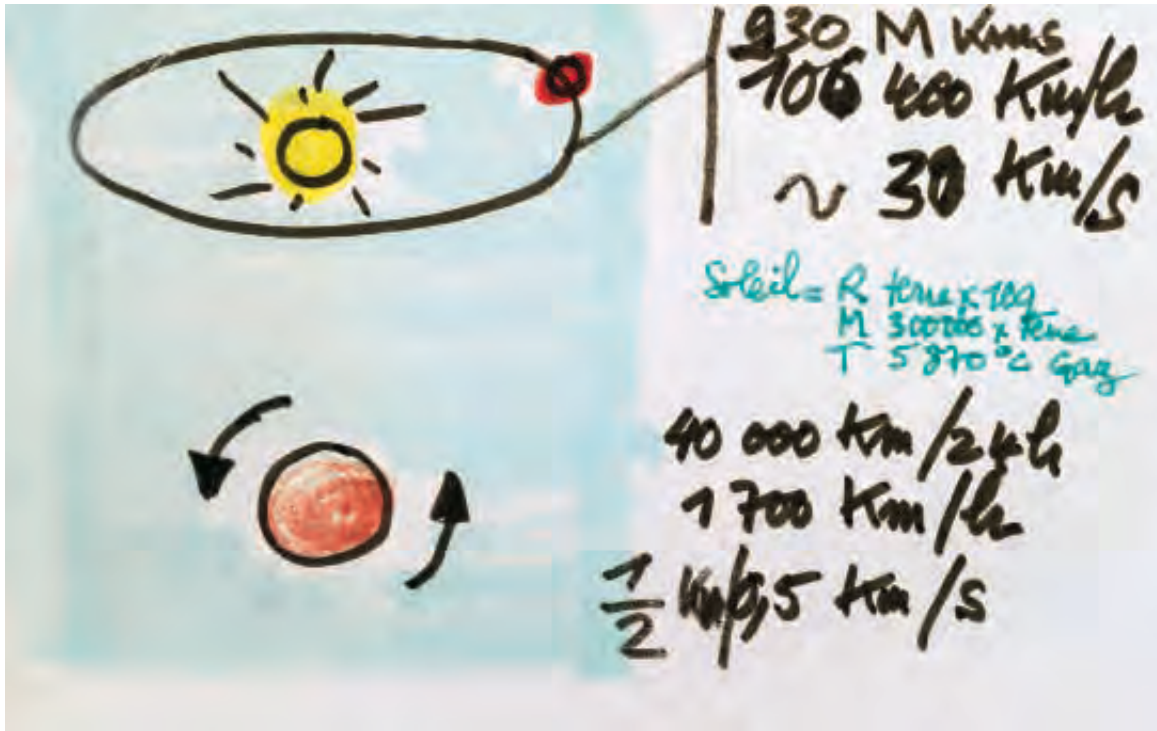 930 M Kms
106 400 Km/h
~ 30 Km/s
Soleil = R terre x 109
M 300000 x Terre
T 5870°C Gaz
40 000 Km/24h
1 700 Km/h
1/2 Km/0,5 Km/s